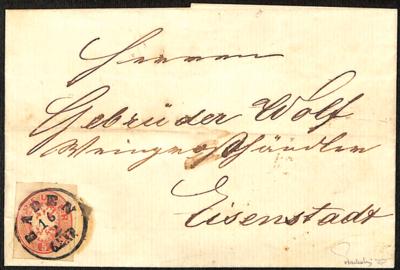 Herren
Gebrüder Wolf
Weingroßhändler
Eisenstadt
BADEN
16